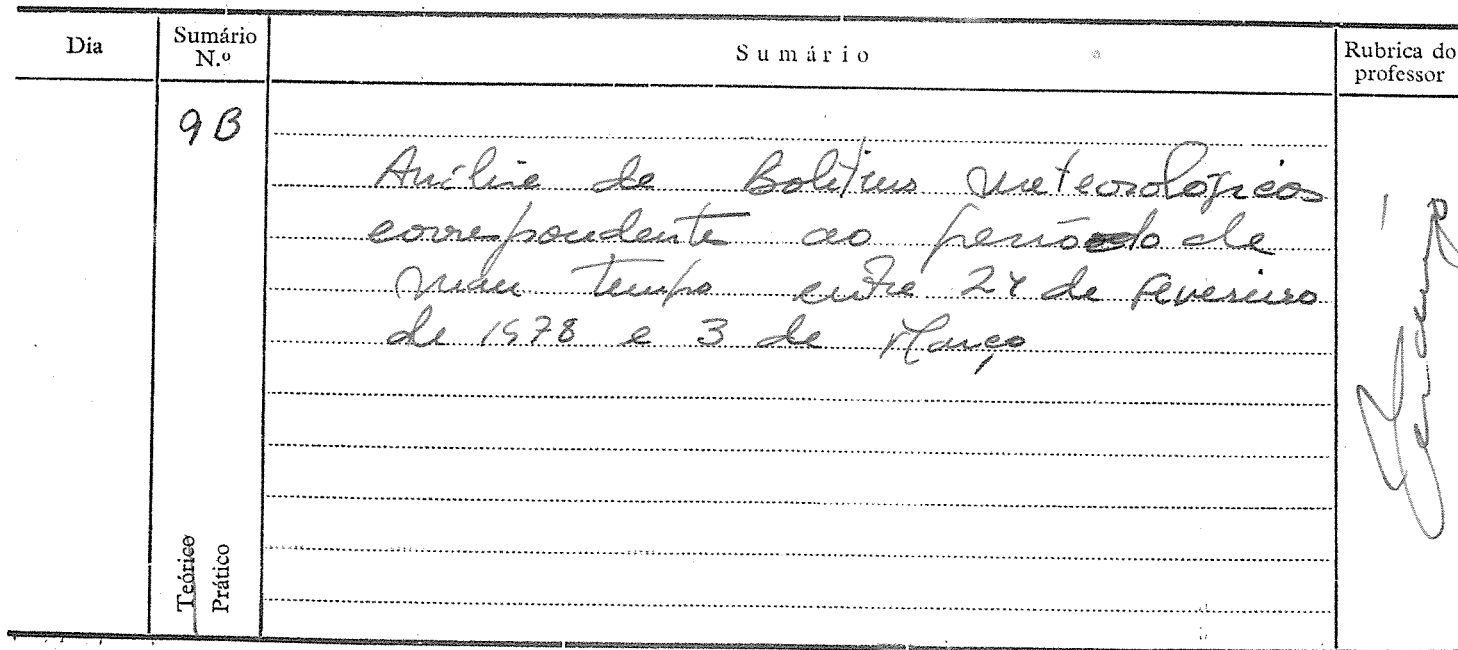 Dia
Sumário N.º
Sumário
Rubrica do professor
9 B
Análise de Boletins meteorológicos
correspondente ao período de
mau tempo entre 24 de fevereiro
de 1978 e 3 de Março
Teórico
Prático